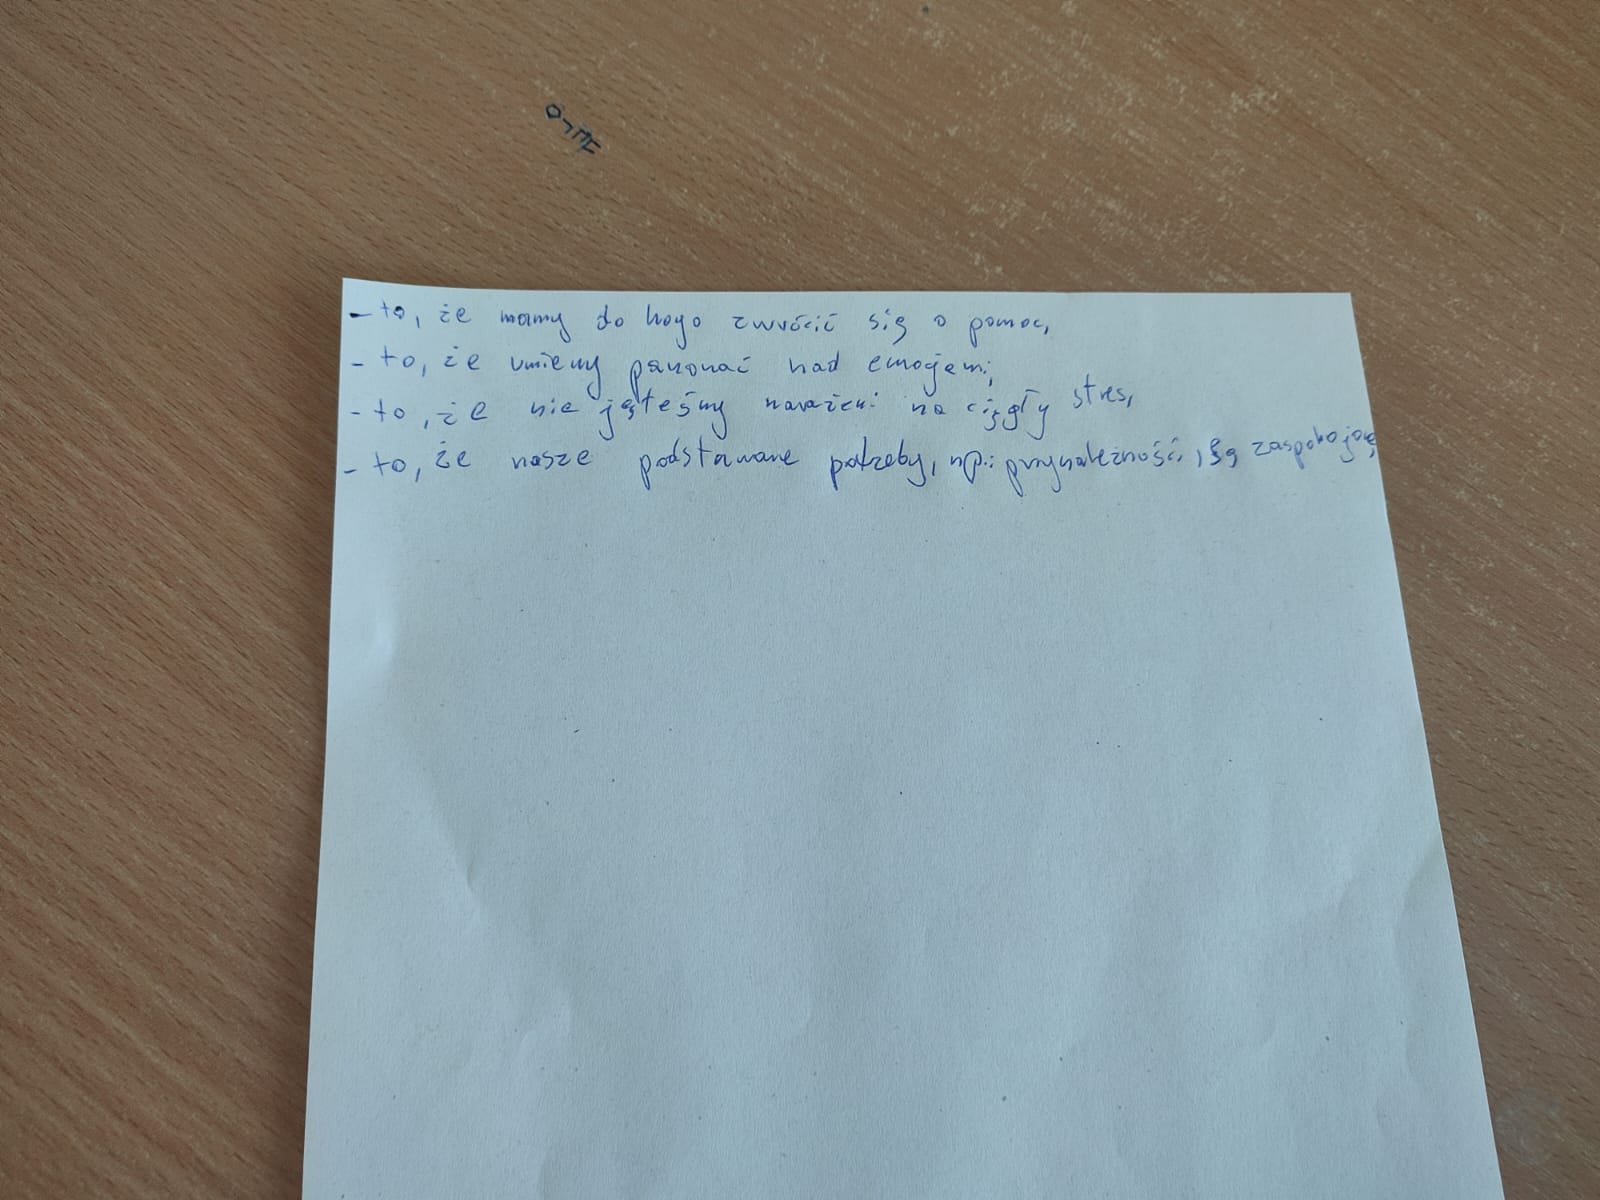 - to, że mamy do kogo zwrócić się o pomoc,
- to, że umiemy panować nad emocjami,
- to, że nie jesteśmy narażeni na ciągły stres,
- to, że nasze podstawowe potrzeby, np.: przynależność, są zaspokojone,